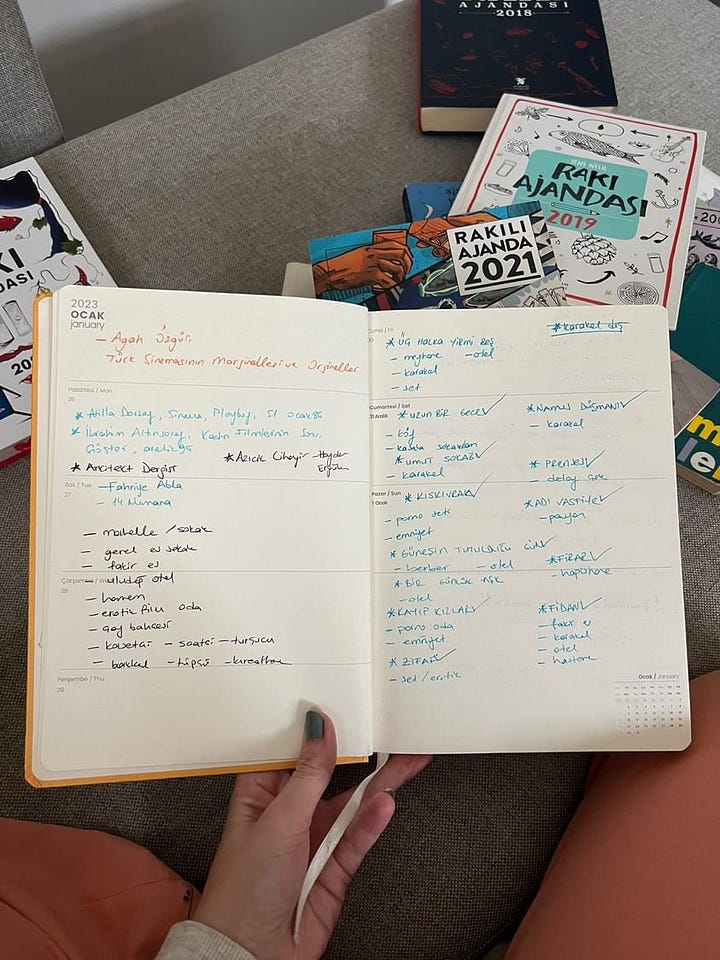 AJANDASI
2018
YENİ NESİL
RAKI
AJANDASI
2019
RAKILI
AJANDA
2021
2023
OCAK
january
- Agah Özgüç
Türk Sinemasının Marjinelleri ve Orjineller
Pazartesi / Mon
26
* Atilla Dorsay, Sinema, Playboy, 51 ocak 86
* İbrahim Altınsoray, Kadın Filmlerinin
Gösteri, aralık 95
* Azıcık Cihayir - Haydar
Ergülen
* Arcitekt Dergisi
Salı / Tue
27
- Fahriye Abla
- 14 Numara
- mahalle / sokak
- genel ev sokak
- fakir ev
Çarşamba / Wed
28
- uludağ otel
- hamam
- erotik film oda
- çay bahçesi
- kasetçi - saatçi - turşucu
- bakkal - tüpçü - kıraathane
Perşembe / Thu
29
Cuma / Fri
30
* ÜÇ HALKA YİRMİ BEŞ
- meyhane - otel
- karakol
- set
* karakol dış
Cumartesi / Sat
31 Aralık
* UZUN BİR GECE ✓
- köy
- kasaba sokakları
* UMUT SOKAĞI ✓
- karakol
* NAMUS DÜŞMANI ✓
- karakol
* PRENSES ✓
Pazar / Sun
1 Ocak
* KISKIVRAK ✓
- porno seti
- emniyet
* ADI VASFİYE ✓
- pavyon
* GÜNEŞİN TUTULDUĞU GÜN ✓
- berber - otel
* FİRAR ✓
- hapishane
* BİR GÜNLÜK AŞK
- otel
* KAYIP KIZLAR ✓
- porno oda
- emniyet
* FİDAN ✓
- fakir ev
- karakol
- otel
- hastane
* ZIFAF ✓
- set / erotik
Ocak / January